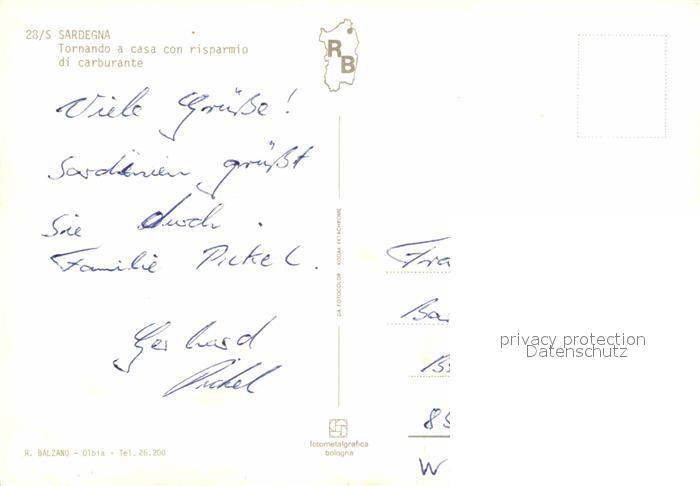 28/S SARDEGNA
Tornando a casa con risparmio
di carburante
RB
Viele Grüße!
Sardinien grüßt
Sie durch.
Familie Pickel.
Gerhard
Pickel
DA FOTOCOLOR KODAK EKTACHROME
Fra
Ba
85
W
privacy protection
Datenschutz
R. BALZANO - Olbia - Tel. 26.200
fotometalgrafica
bologna